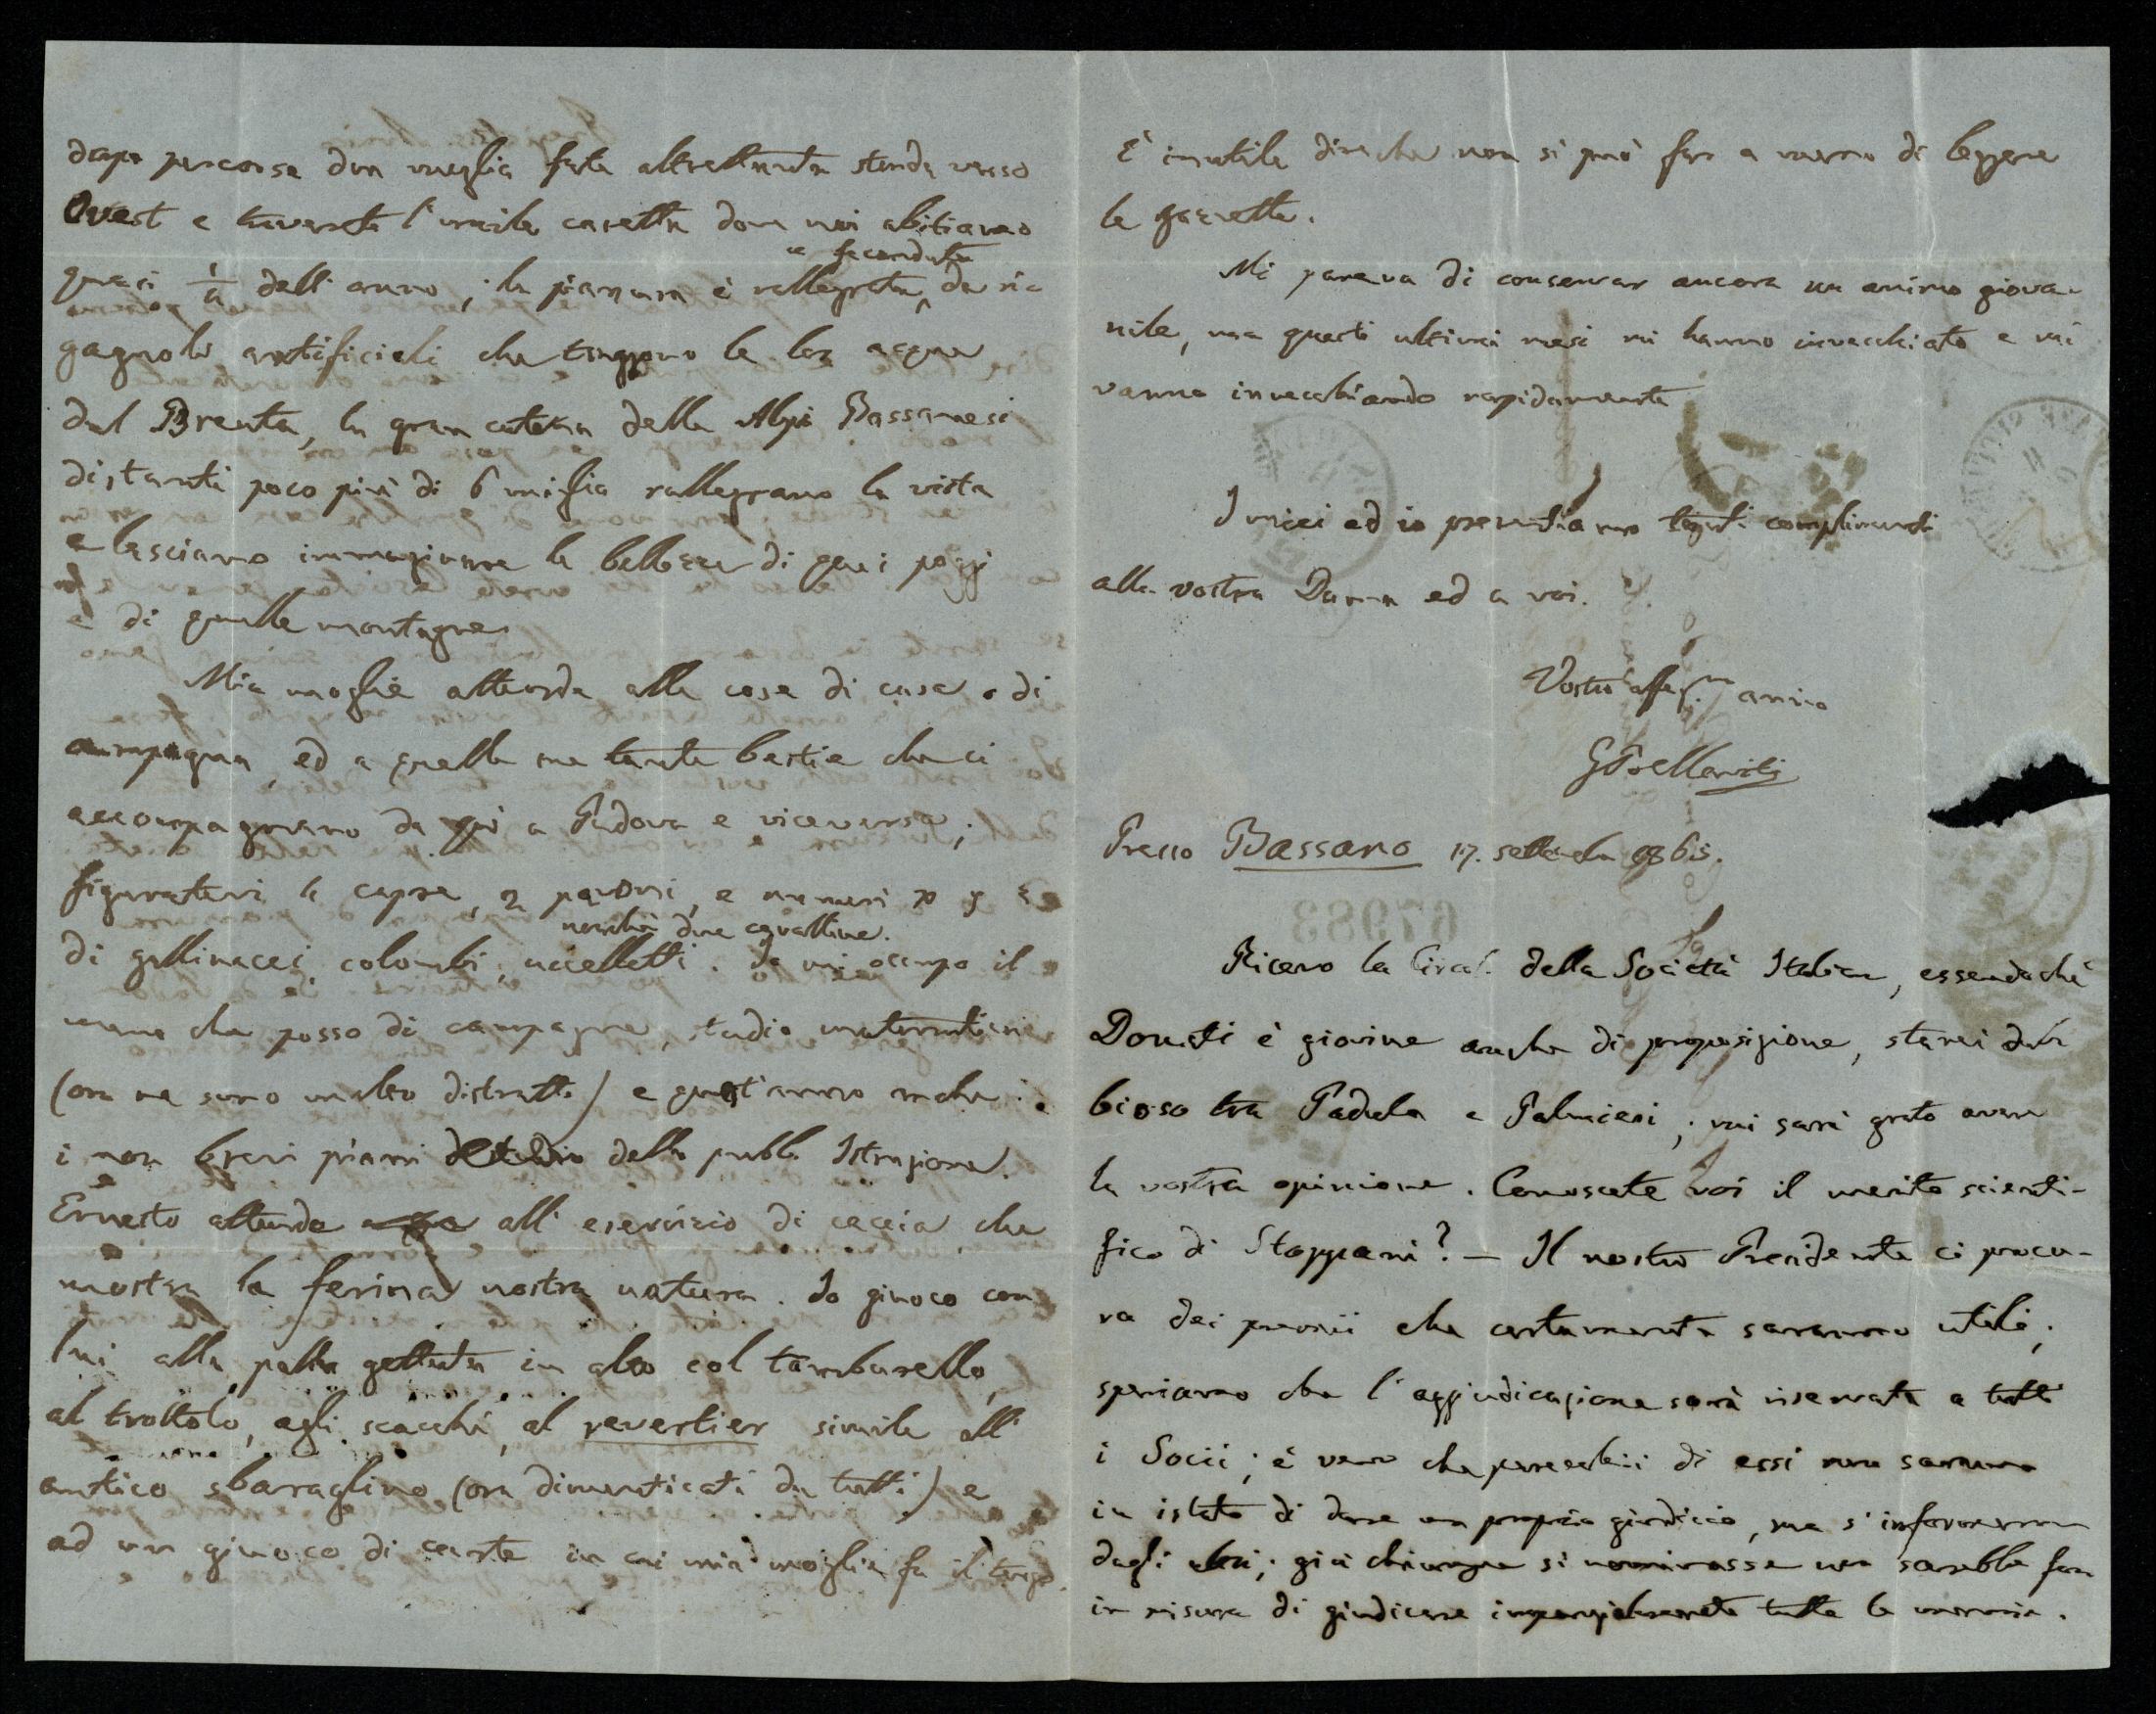 dopo percorse due miglia fate altrettanta strada verso
Ovest e troverete l'umile casetta dove noi abitiamo
quasi 1/4 dell'anno; la pianura è rallegrata da ri-
e fecondata
gagnoli artificiali che traggono le loro acque
dal Brenta, la gran catena delle Alpi Bassanesi
distanti poco più di 6 miglia rallegrano la vista
e lasciano immaginare le bellezze di quei poggi
e di quelle montagne
Mia moglie attende alle cose di casa e di
campagna, ed a quelle sue tante bestie che ci
accompagnano da qui a Padova e viceversa;
figuratevi 4 capre, 2 pavoni, e numeri x y z
nonché due cavalline.
di gallinacei, colombi, uccelletti. Io mi occupo il
meno che posso di campagna, studio matematica
(ora ne sono molto distratto) e quest'anno anche
i non brevi piani della pubbl. Istruzione.
Ernesto attende all'esercizio di caccia che
mostra la ferina nostra natura. Io giuoco con
lui alla palla gettata in alto col tamburello,
al trottolo, agli scacchi, al revertier simile all'
antico sbaraglino (ora dimenticati da tutti) e
ad un giuoco di carte in cui mia moglie fa il terzo.
È inutile dire che non si può far a meno di leggere
le gazzette.
Mi pareva di conservar ancora un animo giova-
nile, ma questi ultimi mesi mi hanno invecchiato e mi
vanno invecchiando rapidamente
I miei ed io presentiamo tanti complimenti
alla vostra Dama ed a voi.
Vostro affez.mo amico
G Bellavitis
Presso Bassano 17. settembre 1865.
67983
Ricevo la Circol. della Società Italiana, essendoché
Donati è giovine anche di proposizione, starei dub-
bioso tra Padula e Palmieri; mi sarà grato avere
la vostra opinione. Conoscete voi il merito scienti-
fico di Stoppani? — Il nostro Presidente ci procu-
ra dei premii che certamente saranno utili;
speriamo che l'aggiudicazione sarà riservata a tutti
i Socii; è vero che parecchii di essi non saranno
in istato di dare un proprio giudizio, ma s'informeranno
dagli altri; già chiunque si nominasse non sarebbe forse
in misura di giudicare imparzialmente tutte le memorie.